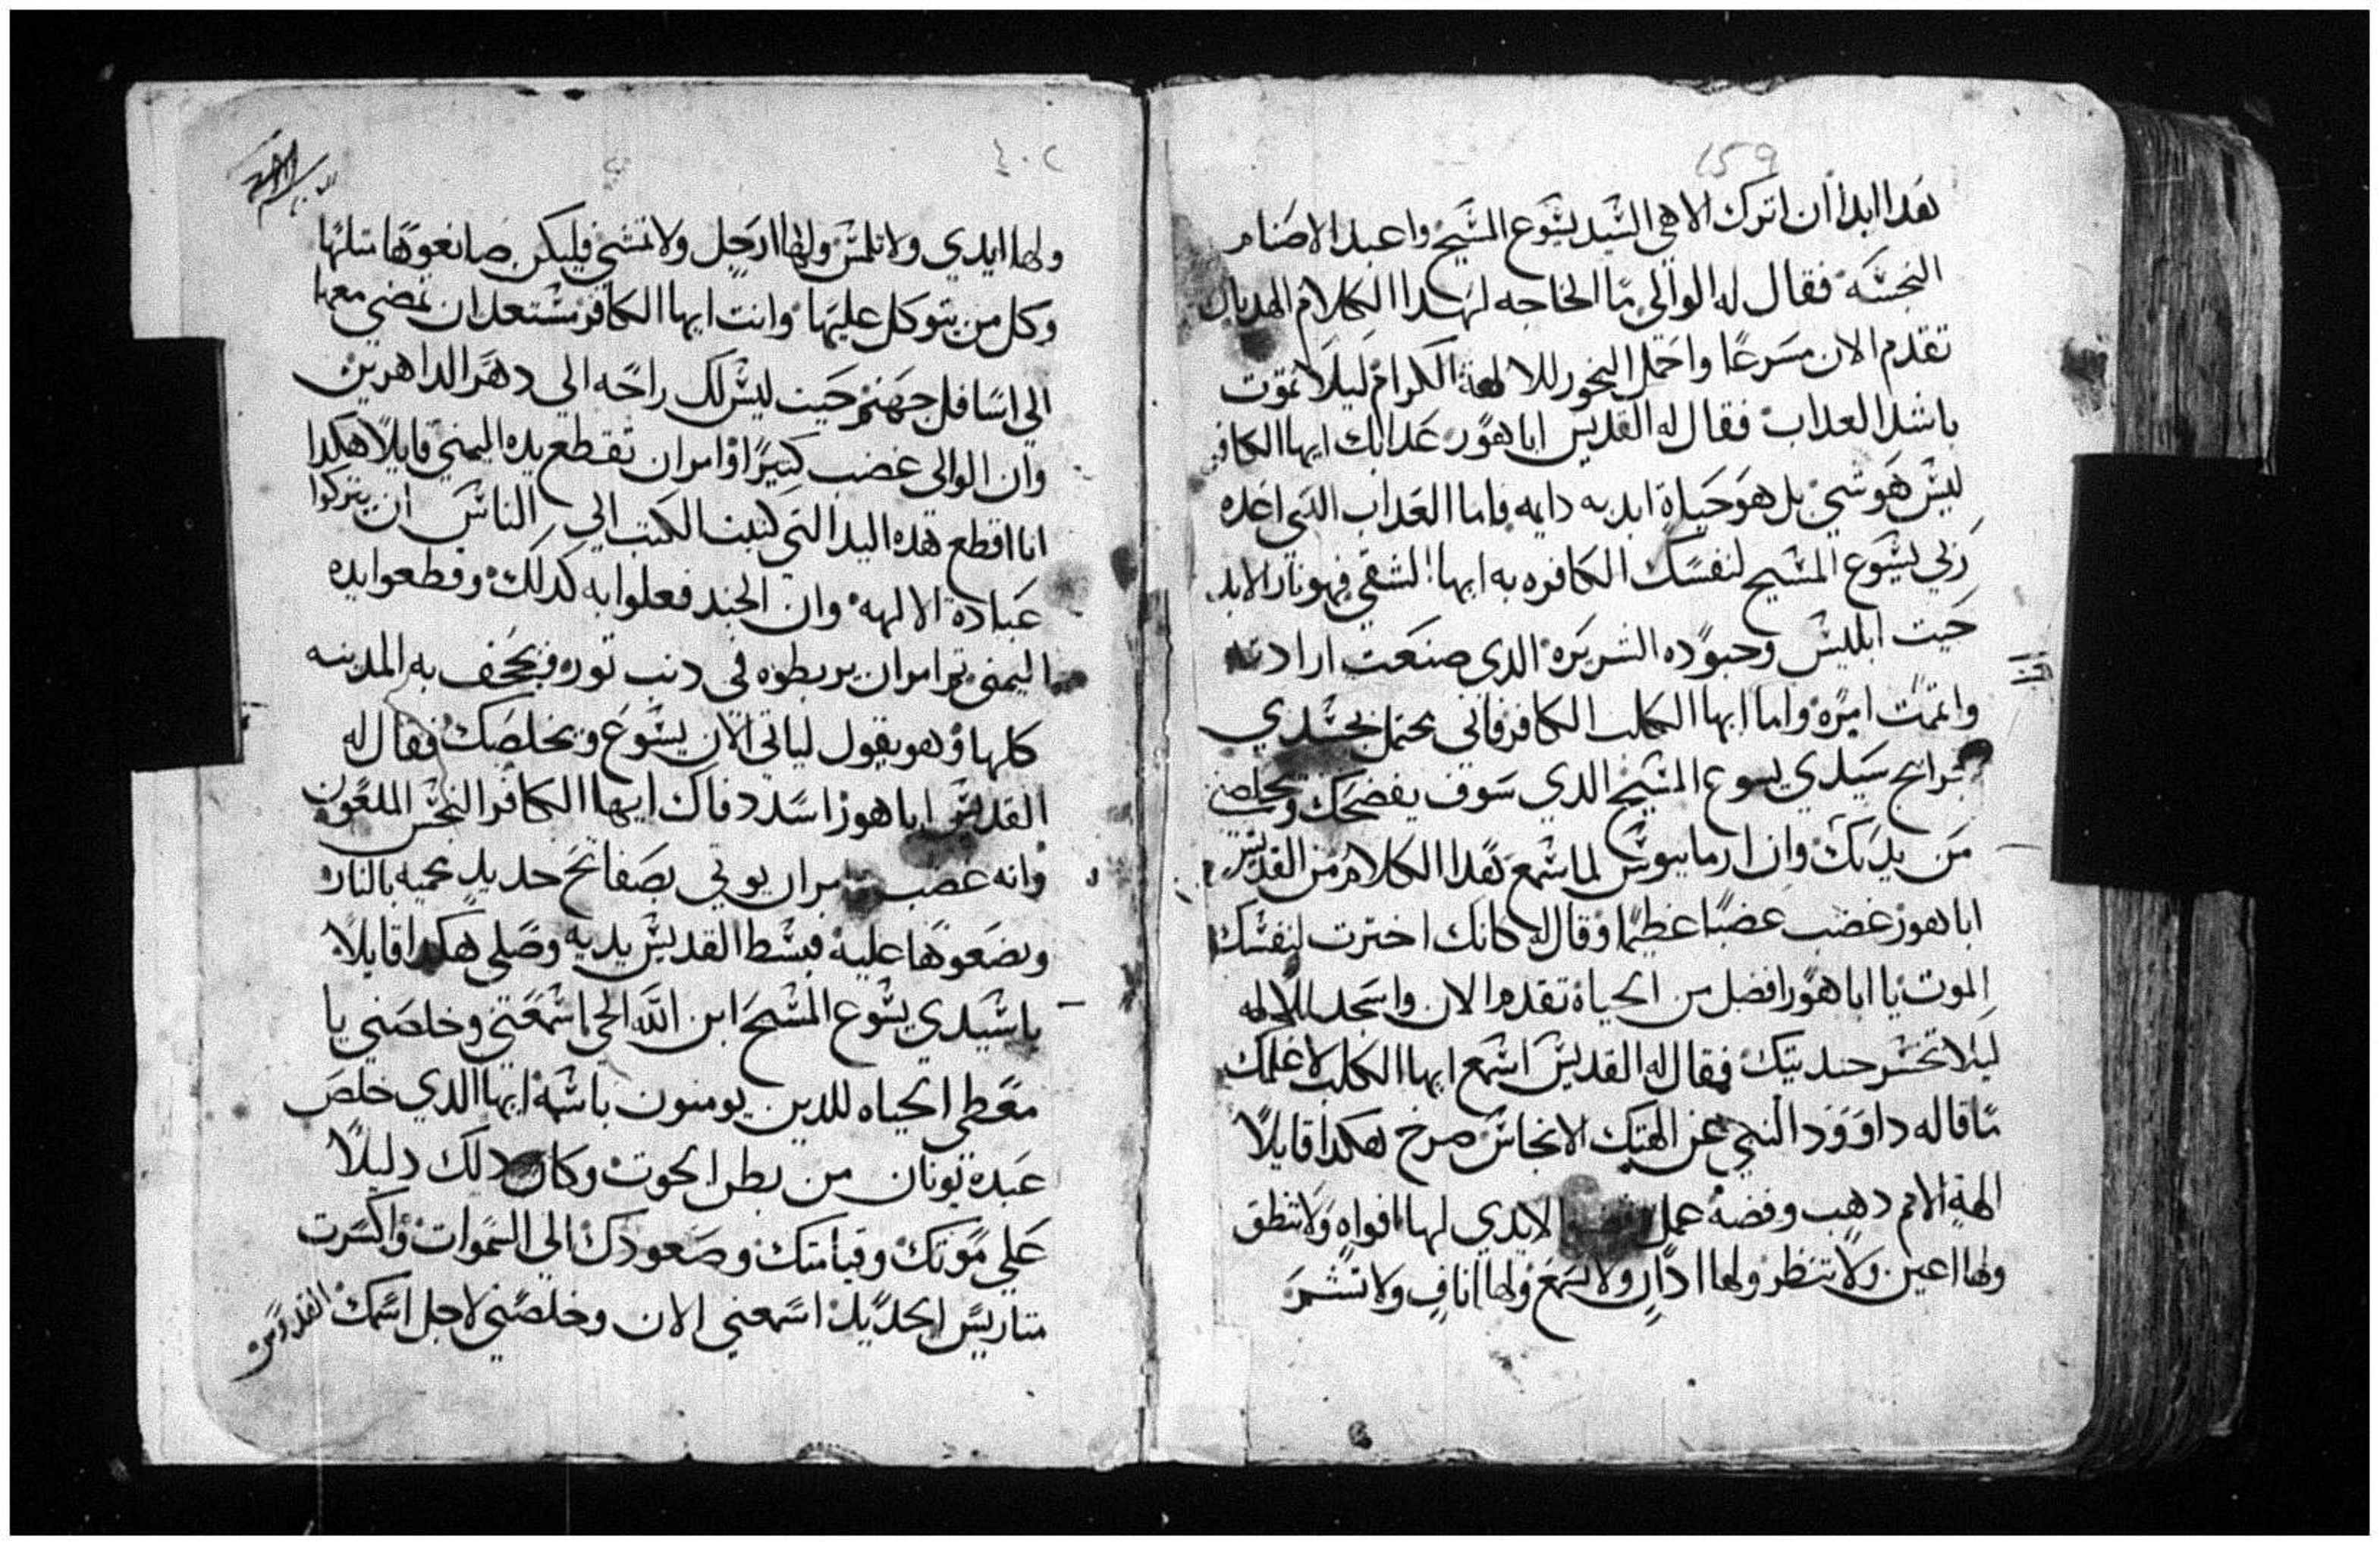 159
هدا ابدا ان اترك الاهي السيد يسوع المسيح واعبد الاصنام
النجسه فقال له الوالي ما الحاجه لهدا الكلام الهديان
تقدم الان مسرعا واحمل البخور للالهة الكرام ليلا تموت
باشد العداب فقال له القديس اباهور عدابك ايها الكافر
ليس هو شي بل هو حياة ابديه دايمه فاما العداب الدي اعده
ربي يسوع المسيح لنفسك الكافره به ايها الشقي فهو نار الابد
حيت ابليس وجنوده الشريره الدي صنعت ارادته
واتممت امره واما ايها الكلب الكافر فاني بحتمل بجسدي
جراح سيدي يسوع المسيح الدي سوف يفضحك ويخلصني
من يديك وان ارمانيوس لما سمع هدا الكلام من القديس
اباهور غضب غضبا عظيما وقال له كانك اخترت لنفسك
الموت يا اباهور افضل من الحياة تقدم الان واسجد للالهه
ليلا تخسر حنديتك فقال له القديس اسمع ايها الكلب لاعلمك
ما قاله داوود النبي عن الهتك الانجاس صرخ هكدا قايلا
الهة الامم دهب وفضه عمل الايدي لها افواه ولا تنطق
ولها اعين ولا تنظر ولها ادان ولا تسمع ولها اناف ولا تشم
٤٠٢
ولها ايدي ولا تلمس ولها ارجل ولا تمشي فليكن صانعوها متلها
وكل من يتوكل عليها وانت ايها الكافر مستعد ان تمضي معها
الي اسافل جهنم حيت ليس لك راحه الي دهر الداهرين
وان الوالي غضب كتيرا وامر ان تقطع يده اليمني قايلا هكدا
انا اقطع هده اليد التي كتبت الكتب الي الناس ان يتركوا
عبادة الالهه وان الجند فعلوا به كدلك وقطعوا يده
اليمني تم امر ان يربطوه في دنب توره في به المدينه
كلها وهو يقول لياتي الان يسوع ويخلصك فقال له
القديس اباهور اسدد فاك ايها الكافر النجس الملعون
وانه غضب ان يوتي بصفائح حديد محميه بالنار
ويضعوها عليه فبسط القديس يديه وصلي هكدا قايلا
يا سيدي يسوع المسيح ابن الله الحي اسمعني وخلصني يا
معطي الحياه للدين يومنون باسمه ايها الدي خلص
عبده يونان من بطن الحوت وكان دلك دليلا
علي موتك وقيامتك وصعودك الي السموات واكسرت
متاريس الحديد اسمعني الان وخلصني لاجل اسمك القدوس